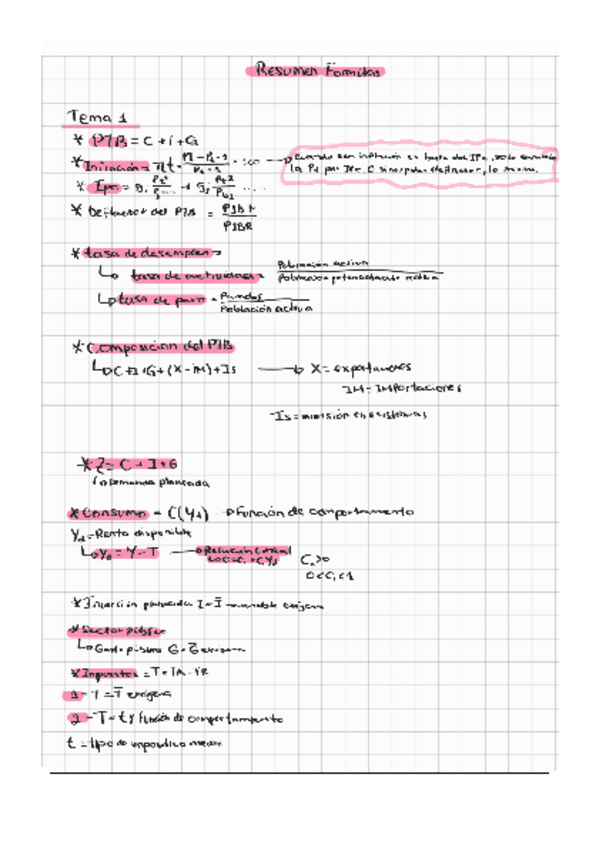 Resumen Formulas
Tema 1
* PIB = C + I + G
* Inflación πt = Pt - Pt-1 / Pt-1 · 100 → Cuando sea inflación en base del IPC, solo cambia
la Pt por IPC
* IPC =
* Deflactor del PIB = PIBN / PIBR
* tasa de desempleo
↳ tasa de actividad = Población activa / Población potencialmente activa
↳ tasa de paro = Parados / Población activa
* Composición del PIB
↳ C + I + G + (X - IM) + Is → X = exportaciones
IM = Importaciones
Is = inversión en existencias
* Z = C + I + G
↳ Demanda planeada
* Consumo = C(Yd) → Función de comportamiento
Yd = Renta disponible
↳ Yd = Y - T → Relación lineal
↳ C = C0 + C1Yd
C0 > 0
0 < C1 < 1
* Inversión planeada I = Ī → variable exógena
* Sector público
↳ Gasto público G = Ḡ exógeno
* Impuestos = T = TA - TR
1 - T = T̄ exógena
2 - T = tY función de comportamiento
t = tipo de impositivo medio